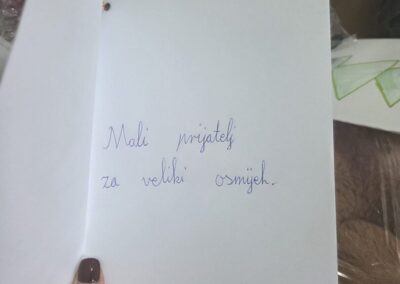 Mali prijatelj
za veliki osmijeh.